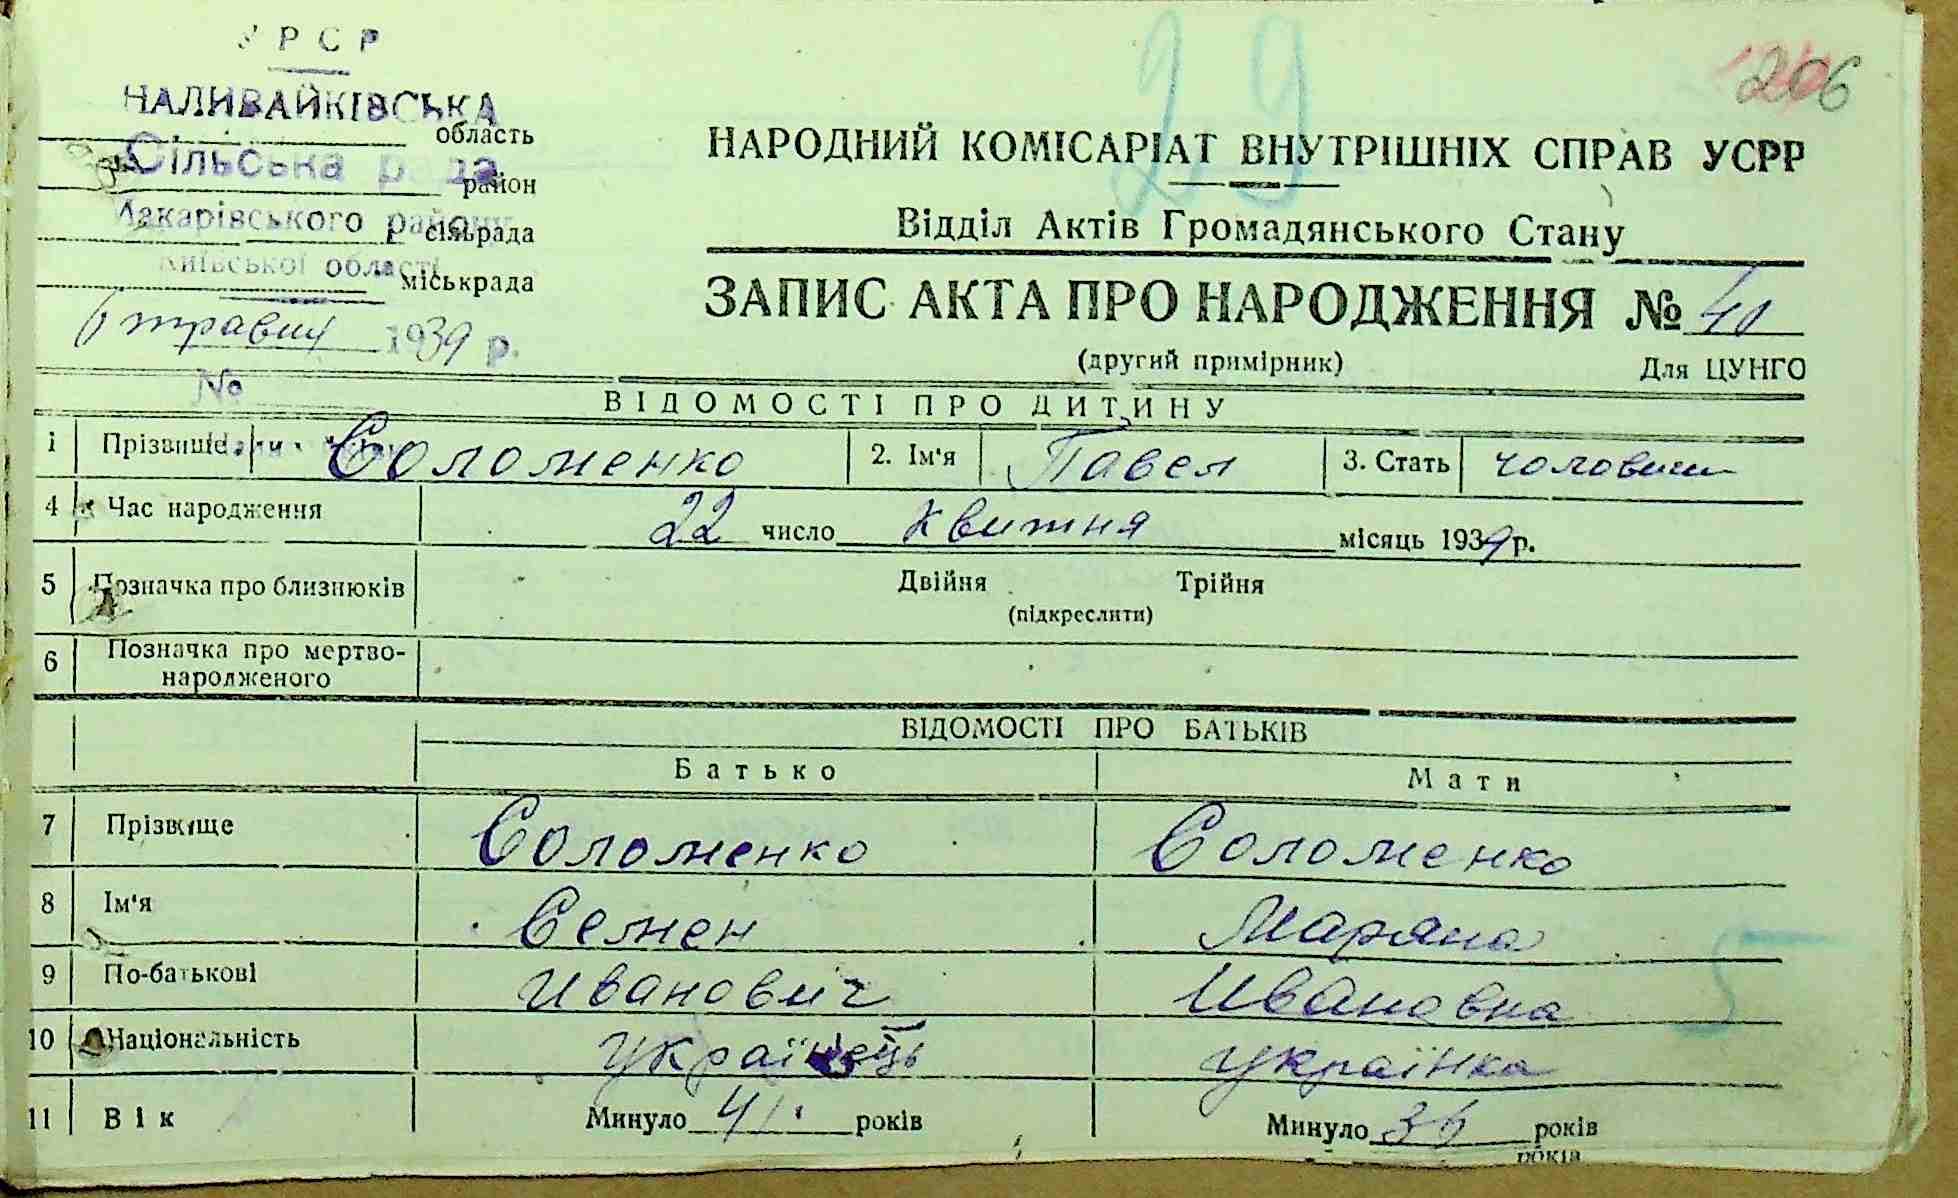 УРСР
206
29
НАЛИВАЙКІВСЬКА
область
Сільська рада
район
Макарівського району
сільрада
Київської області
міськрада
6 травня 1939 р.
№
НАРОДНИЙ КОМІСАРІАТ ВНУТРІШНІХ СПРАВ УСРР
Відділ Актів Громадянського Стану
ЗАПИС АКТА ПРО НАРОДЖЕННЯ № 40
(другий примірник) Для ЦУНГО
ВІДОМОСТІ ПРО ДИТИНУ
1 Прізвище Соломенко 2. Ім'я Павел 3. Стать
4 Час народження 22 число квитня місяць 1939 р.
5 Позначка про близнюків Двійня Трійня
(підкреслити)
6 Позначка про мертво-
народженого
ВІДОМОСТІ ПРО БАТЬКІВ
Батько Мати
7 Прізвище Соломенко Соломенко
8 Ім'я Семен Маряна
9 По-батькові Иванович Ивановна
5
10 Національність українець українка
11 Вік Минуло 41 років Минуло 36 років
років